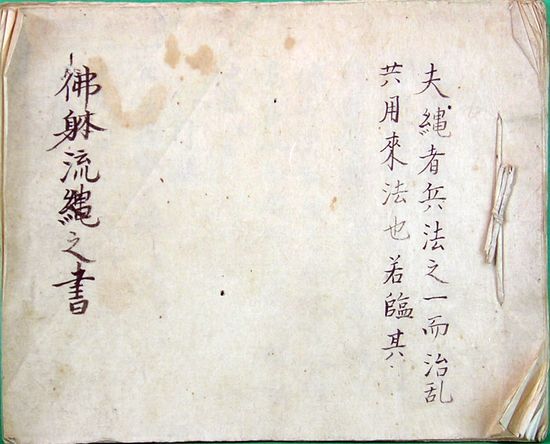 夫縄者兵法之一而治乱
共用來法也若臨其
佛躰流縄之書